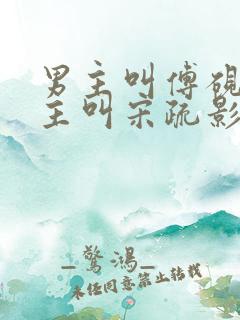 男主叫傅砚
主叫宋疏影
_驚鴻_
未经同意禁止转载